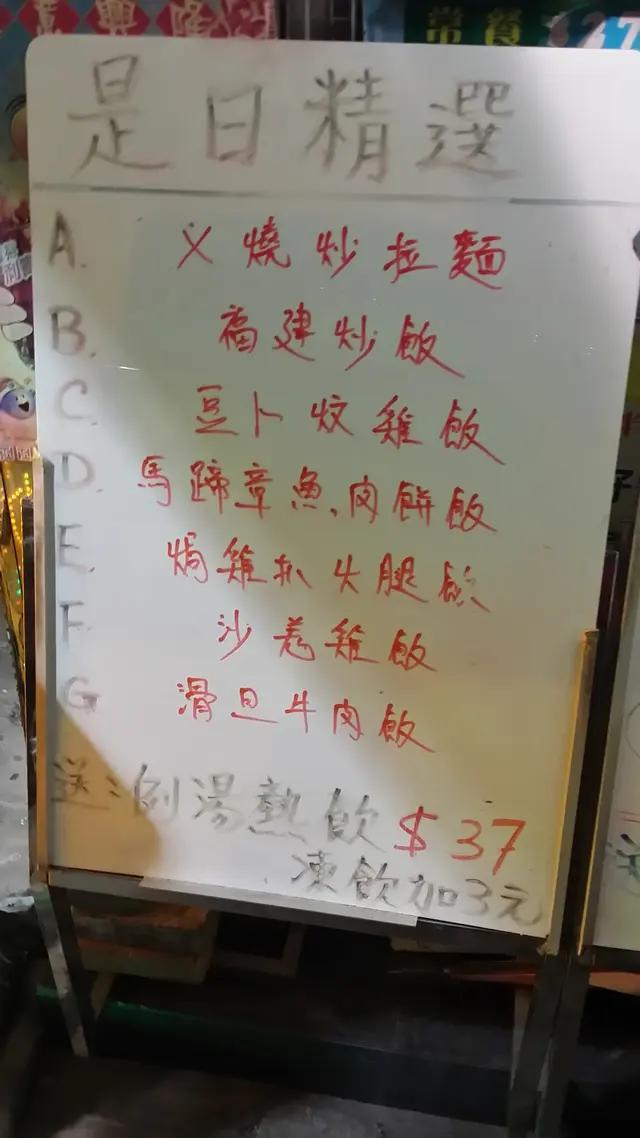 常餐
是日精選
A. 乂燒炒拉麵
B. 福建炒飯
C. 豆卜炆雞飯
D. 馬蹄章魚肉餅飯
E. 焗雞扒火腿飯
F. 沙羗雞飯
G 滑旦牛肉飯
送：例湯熱飲 $37
凍飲加3元